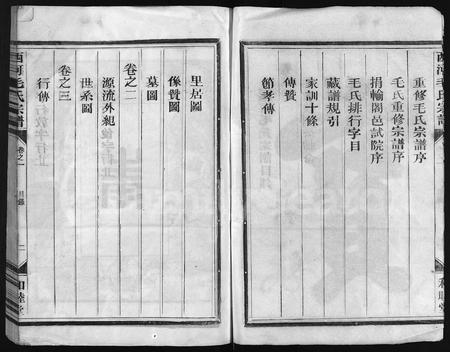 西河毛氏宗譜
重修毛氏宗譜序
毛氏重修宗譜序
捐輸闔邑試院序
毛氏排行字目
藏譜規引
家訓十條
傳贊
節孝傳
里居圖
像贊圖
墓圖
卷之二
源流外紀
世系圖
卷之三
行傳
西河毛氏宗譜
卷之一
目錄
二
和睦堂